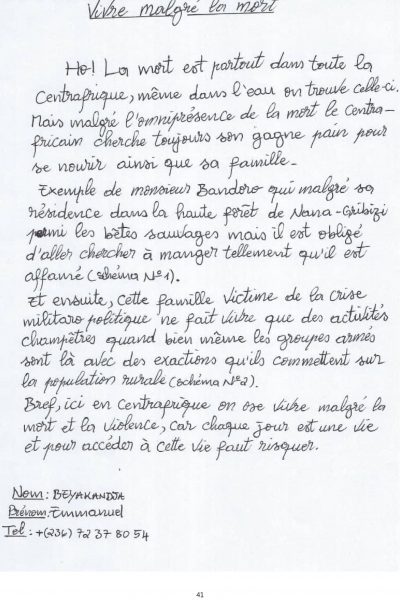 Vivre malgré la mort
Ho! La mort est partout dans toute la
Centrafrique, même dans l'eau on trouve celle-ci.
Mais malgré l'omniprésence de la mort le Centra-
fricain cherche toujours son gagne pain pour
se nourir ainsi que sa famille.
Exemple de monsieur Bandoro qui malgré sa
résidence dans la haute forêt de Nana-Gribizi
parmi les bêtes sauvages mais il est obligé
d'aller chercher à manger tellement qu'il est
affamé (schéma N°1).
Et ensuite, cette famille victime de la crise
militaro politique ne fait vivre que des activités
champêtres quand bien même les groupes armés
sont là avec des exactions qu'ils commettent sur
la population rurale (schéma N°2).
Bref, ici en Centrafrique on ose vivre malgré la
mort et la violence, car chaque jour est une vie
et pour accéder à cette vie faut risquer.
Nom: BEYAKANDJA
Prénom: Emmanuel
Tel: +(236) 72 37 80 54
41